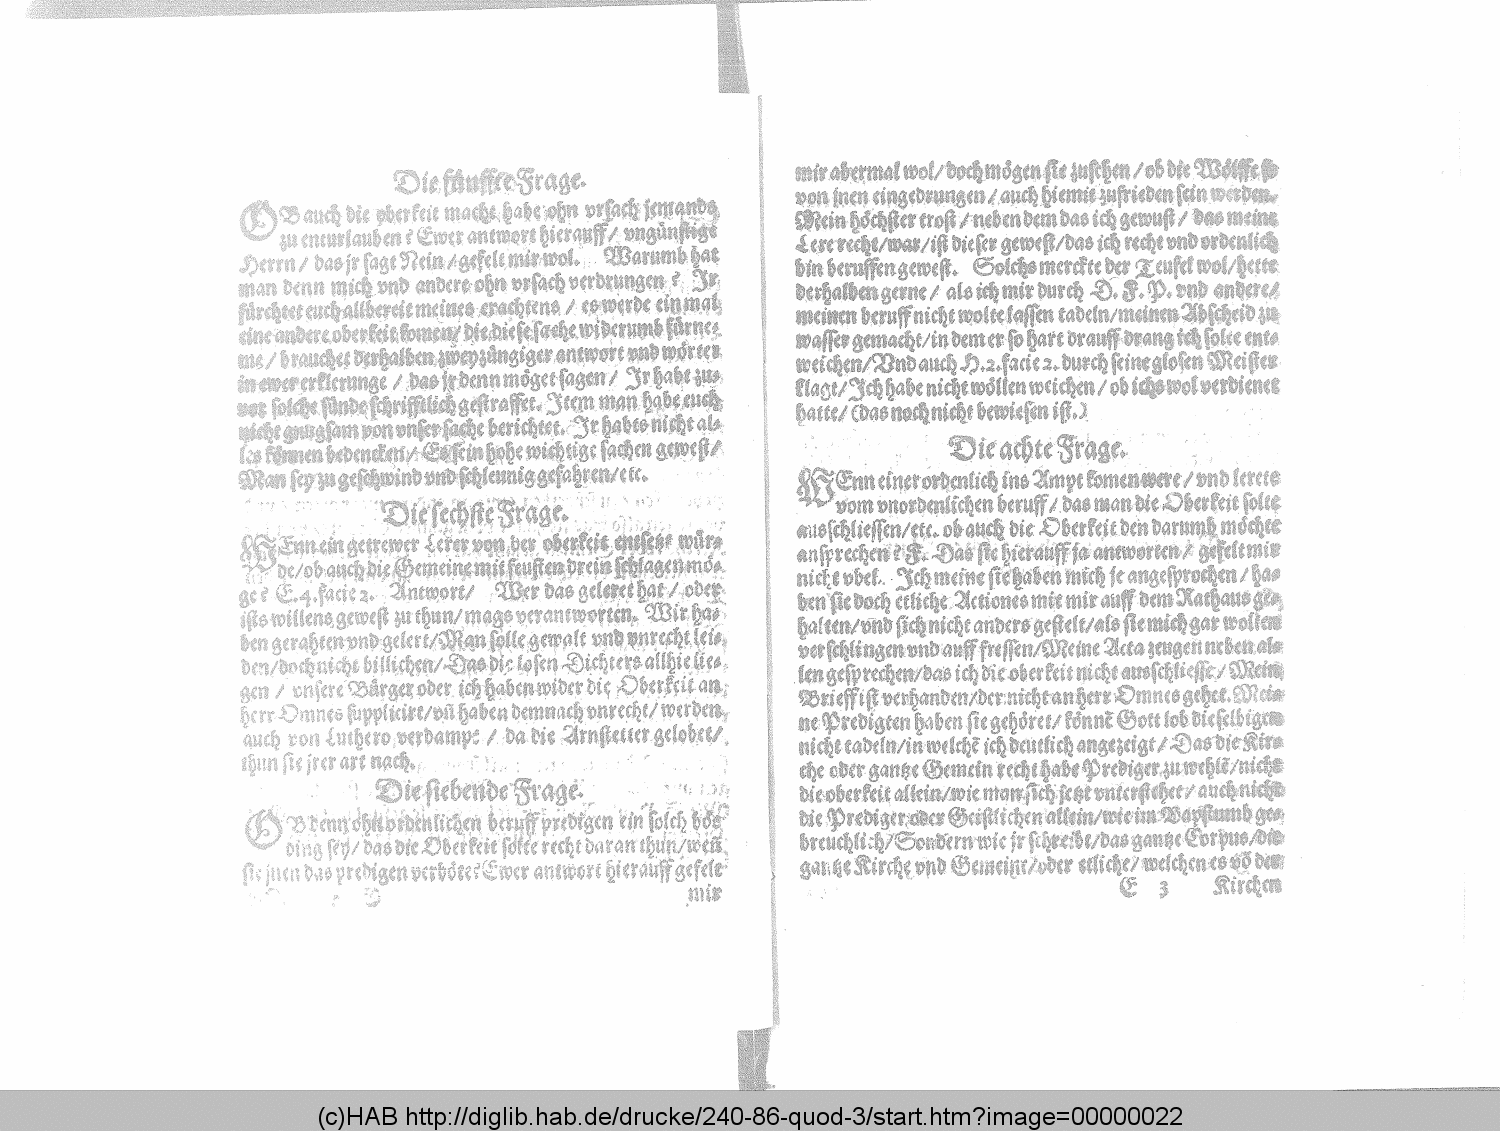 Die fünffte Frage.
OB auch die oberkeit macht habe ohn vrsach jemands
zu enturlauben? Ewer antwort hierauff/ vngünstige
Herrn/ das jr sagt Nein/ gefelt mir wol. Warumb hat
man denn mich vnd andere ohn vrsach verdrungen? Jr
fürchtet euch allbereit meines erachtens/ es werde ein mal
eine andere oberkeit komen/ die diese sache widerumb fürne-
me/ brauchet derhalben zweyzüngiger antwort vnd wörter
in ewer erklerunge/ das jr denn möget sagen/ Jr habt zu-
vor solche sünde schrifftlich gestraffet. Jtem man habe euch
nicht gnugsam von vnser sache berichtet. Jr habts nicht al-
les können bedencken/ Es sein hohe wichtige sachen gewest/
Man sey zu geschwind vnd schleunig gefahren/ etc.
Die sechste Frage.
WEnn ein getrewer Lerer von der oberkeit entsetzt wür-
de/ ob auch die Gemeine mit feusten drein schlagen mö-
ge? E.4.facie 2. Antwort/ Wer das geleret hat/ oder
ists willens gewest zu thun/ mags verantworten. Wir ha-
ben gerahten vnd gelert/ Man solle gewalt vnd vnrecht lei-
den/ doch nicht billichen/ Das die losen Dichters allhie lie-
gen/ vnsere Bürger oder ich haben wider die Oberkeit an
herr Omnes supplicirt/ vñ haben demnach vnrecht/ werden
auch von Luthero verdampt/ da die Arnstetter gelobet/
thun sie jrer art nach.
Die siebende Frage.
OB denn ohn ordenlichen beruff predigen ein solch bös
ding sey/ das die Oberkeit solte recht daran thun/ wen
sie jnen das predigen verböte? Ewer antwort hierauff gefelt
mir
mir abermal wol/ doch mögen sie zusehen/ ob die Wölffe so
von jnen eingedrungen/ auch hiemit zufrieden sein werden.
Mein höchster trost/ neben dem das ich gewust/ das meine
Lere recht/ war/ ist dieser gewest/ das ich recht vnd ordenlich
bin beruffen gewest. Solchs merckte der Teufel wol/ hette
derhalben gerne/ als ich mir durch D. F. P. vnd andere/
meinen beruff nicht wolte lassen tadeln/ meinen Abscheid zu
wasser gemacht/ in dem er so hart drauff drang ich solte ent-
weichen/ Vnd auch H.2.facie 2. durch seine glosen Meister
klagt/ Jch habe nicht wöllen weichen/ ob ichs wol verdienet
hatte/ (das noch nicht bewiesen ist.)
Die achte Frage.
WEnn einer ordenlich ins Ampt komen were/ vnd lerete
vom vnordenlichen beruff/ das man die Oberkeit solte
ausschliessen/ etc. ob auch die Oberkeit den darumb möchte
ansprechen? F. Das sie hierauff ja antworten/ gefelt mir
nicht vbel. Jch meine sie haben mich je angesprochen/ ha-
ben sie doch etliche Actiones mit mir auff dem Rathaus ge-
halten/ vnd sich nicht anders gestelt/ als sie mich gar wolten
verschlingen vnd auff fressen/ Meine Acta zeugen neben al-
len gesprechen/ das ich die oberkeit nicht ausschliesse/ Mein
Brieff ist verhanden/ der nicht an herr Omnes gehet. Mei-
ne Predigten haben sie gehöret/ könnē Gott lob dieselbigen
nicht tadeln/ in welchē ich deutlich angezeigt/ Das die Kir-
che oder gantze Gemein recht habe Prediger zu wehlē/ nicht
die oberkeit allein/ wie man sich jetzt vnterstehet/ auch nicht
die Prediger oder Geistlichen allein/ wie im Bapstumb ge-
breuchlich/ Sondern wie jr schreibt/ das gantze Corpus/ die
gantze Kirche vnd Gemeine/ oder etliche/ welchen es vō der
E 3 Kirchen
(c)HAB http://diglib.hab.de/drucke/240-86-quod-3/start.htm?image=00000022